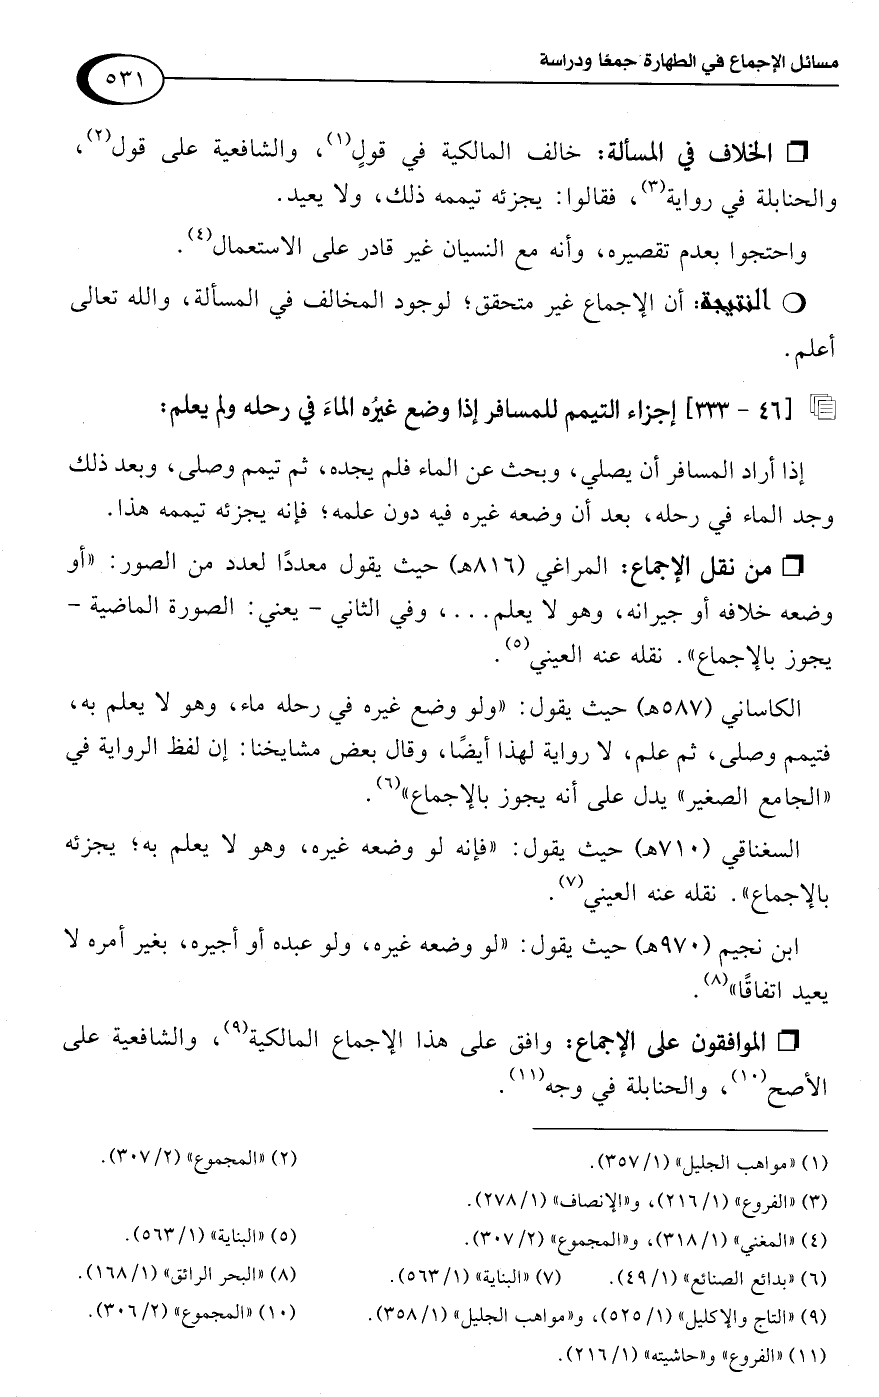 مسائل الإجماع في الطهارة جمعًا ودراسة
٥٣١
❒ الخلاف في المسألة: خالف المالكية في قولٍ(١)، والشافعية على قول(٢)،
والحنابلة في رواية(٣)، فقالوا: يجزئه تيممه ذلك، ولا يعيد.
واحتجوا بعدم تقصيره، وأنه مع النسيان غير قادر على الاستعمال(٤).
❍ النتيجة: أن الإجماع غير متحقق؛ لوجود المخالف في المسألة، والله تعالى
أعلم.
[٤٦ - ٣٣٣] إجزاء التيمم للمسافر إذا وضع غيرُه الماءَ في رحله ولم يعلم:
إذا أراد المسافر أن يصلي، وبحث عن الماء فلم يجده، ثم تيمم وصلى، وبعد ذلك
وجد الماء في رحله، بعد أن وضعه غيره فيه دون علمه؛ فإنه يجزئه تيممه هذا.
❒ من نقل الإجماع: المراغي (٨١٦هـ) حيث يقول معددًا لعدد من الصور: «أو
وضعه خلافه أو جيرانه، وهو لا يعلم...، وفي الثاني - يعني: الصورة الماضية -
يجوز بالإجماع». نقله عنه العيني(٥).
الكاساني (٥٨٧هـ) حيث يقول: «ولو وضع غيره في رحله ماء، وهو لا يعلم به،
فتيمم وصلى، ثم علم، لا رواية لهذا أيضًا، وقال بعض مشايخنا: إن لفظ الرواية في
«الجامع الصغير» يدل على أنه يجوز بالإجماع»(٦).
السغناقي (٧١٠هـ) حيث يقول: «فإنه لو وضعه غيره، وهو لا يعلم به؛ يجزئه
بالإجماع». نقله عنه العيني(٧).
ابن نجيم (٩٧٠هـ) حيث يقول: «لو وضعه غيره، ولو عبده أو أجيره، بغير أمره لا
يعيد اتفاقًا»(٨).
❒ الموافقون على الإجماع: وافق على هذا الإجماع المالكية(٩)، والشافعية على
الأصح(١٠)، والحنابلة في وجه(١١).
(١) «مواهب الجليل» (٣٥٧/١). (٢) «المجموع» (٣٠٧/٢).
(٣) «الفروع» (٢١٦/١)، و«الإنصاف» (٢٧٨/١).
(٤) «المغني» (٣١٨/١)، و«المجموع» (٣٠٧/٢). (٥) «البناية» (٥٦٣/١).
(٦) «بدائع الصنائع» (٤٩/١). (٧) «البناية» (٥٦٣/١). (٨) «البحر الرائق» (١٦٨/١).
(٩) «التاج والإكليل» (٥٢٥/١)، و«مواهب الجليل» (٣٥٨/١). (١٠) «المجموع» (٣٠٦/٢).
(١١) «الفروع» و«حاشيته» (٢١٦/١).